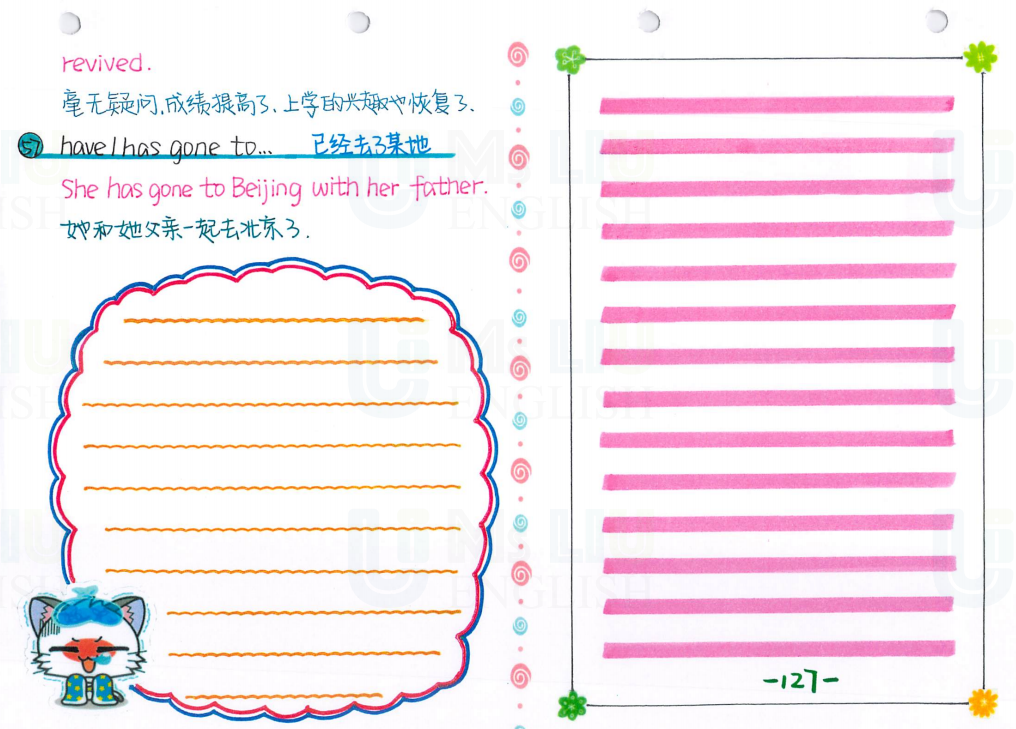 revived.
毫无疑问,成绩提高了、上学的兴趣也恢复了、
57 have/has gone to... 已经去了某地
She has gone to Beijing with her father.
她和她父亲一起去北京了.
-127-
MS LIU
ENGLISH